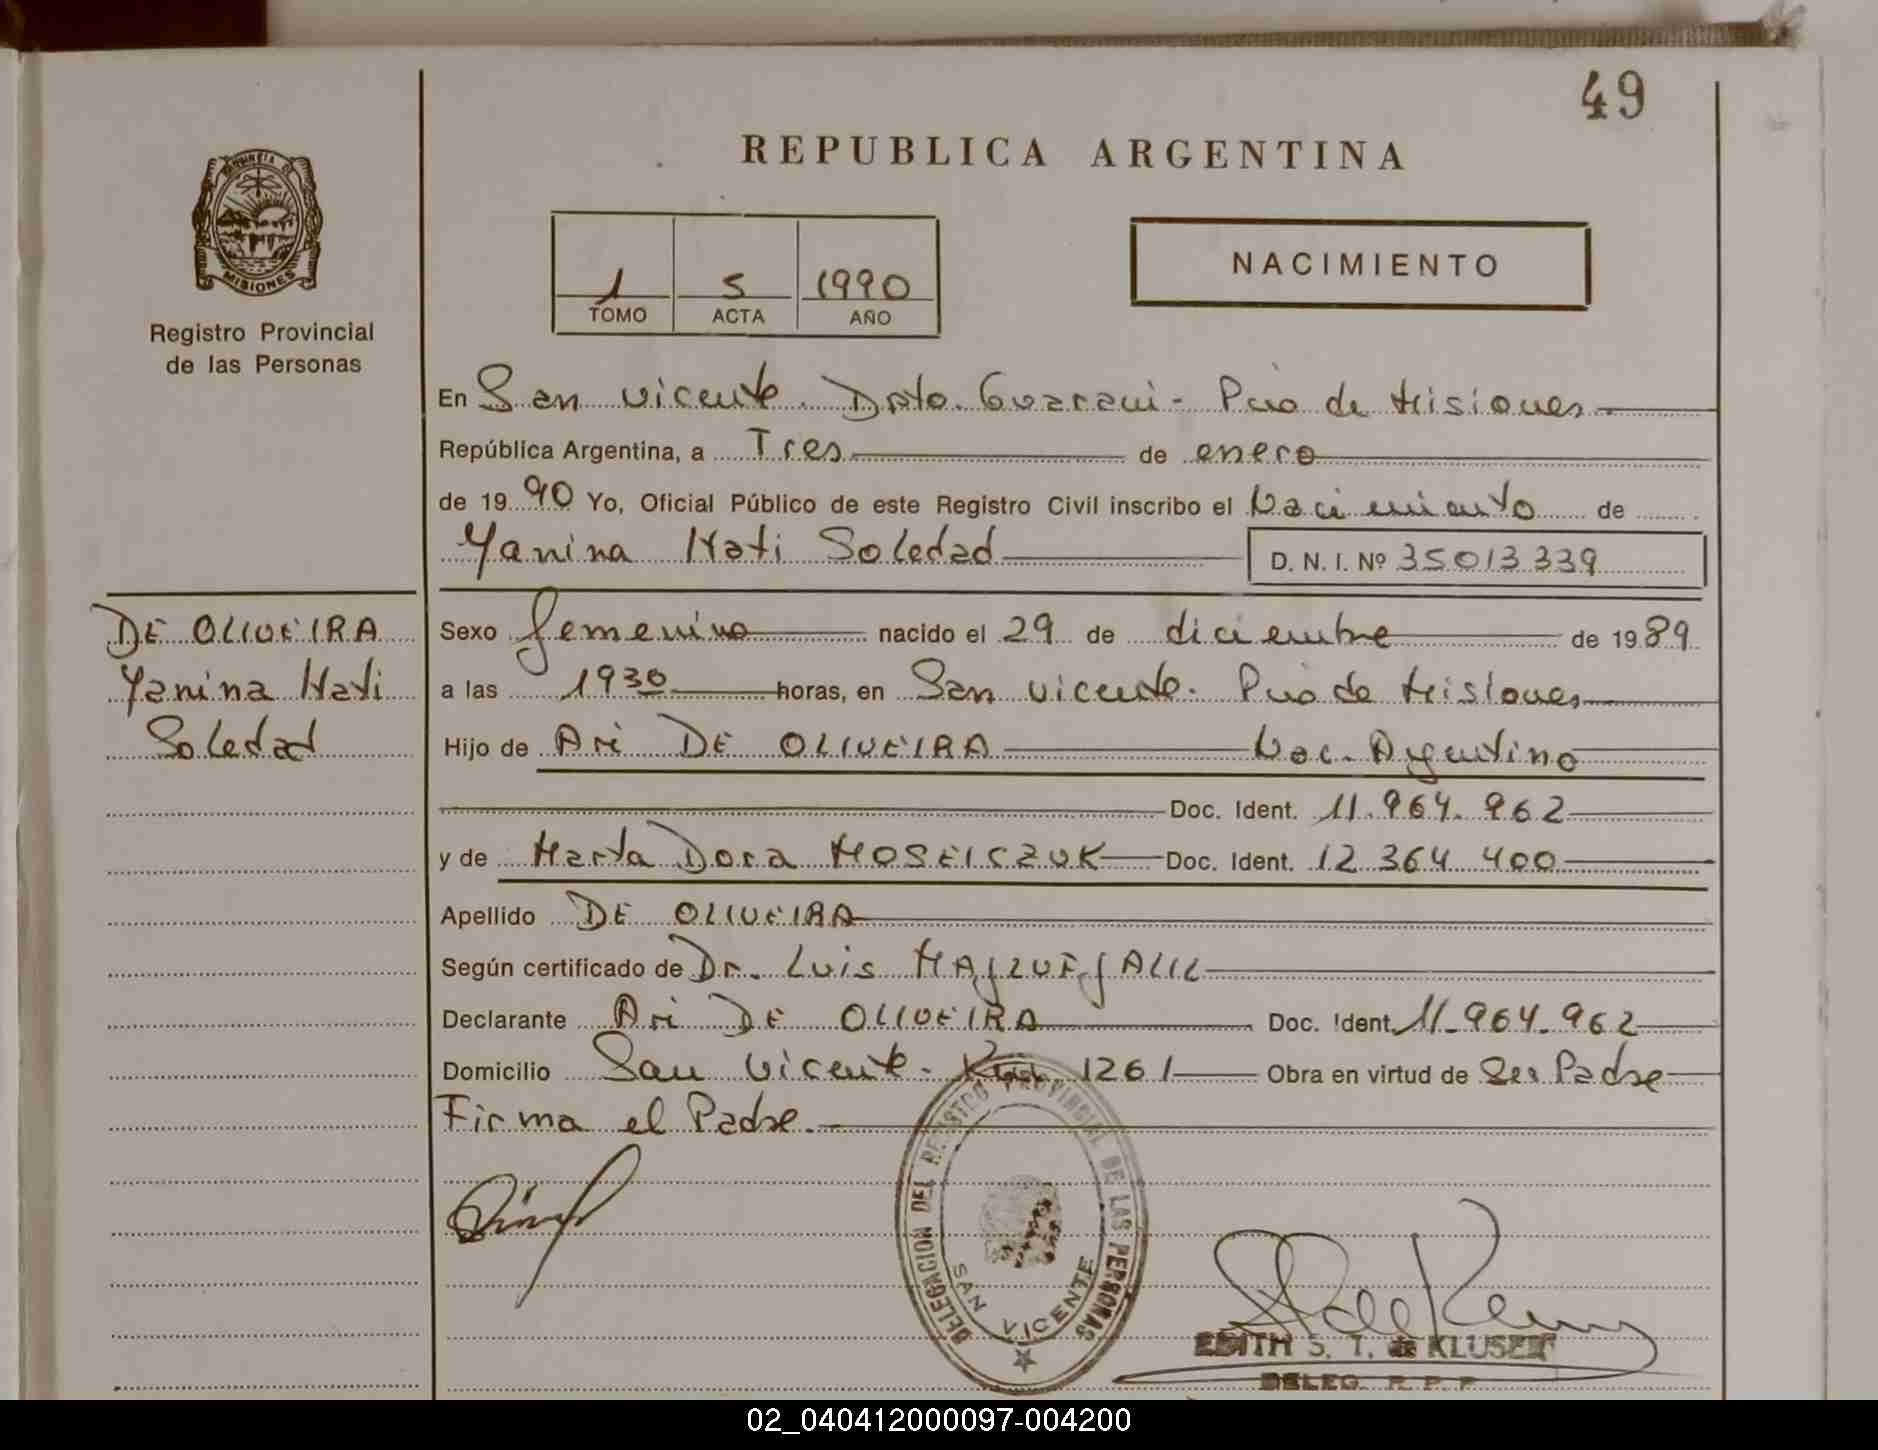 49
REPUBLICA ARGENTINA
PROVINCIA DE
MISIONES
Registro Provincial
de las Personas
1 5 1990
TOMO ACTA AÑO
NACIMIENTO
En San Vicente. Dpto. Guarani - Pcia de Misiones
República Argentina, a Tres de enero
de 1990 Yo, Oficial Público de este Registro Civil inscribo el Nacimiento de
Yanina Nati Soledad D. N. I. Nº 35013339
DE OLIVEIRA
Yanina Nati
Soledad
Sexo femenino nacido el 29 de diciembre de 1989
a las 1930 horas, en San Vicente. Pcia de Misiones
Hijo de Ari DE OLIVEIRA Nac. Argentino
Doc. Ident. 11.964.962
y de Marta Dora MOSEICZUK Doc. Ident. 12 364 400
Apellido DE OLIVEIRA
Según certificado de Dr. Luis
Declarante Ari DE OLIVEIRA Doc. Ident. 11.964.962
Domicilio San Vicente. Km 1261 Obra en virtud de Ser Padre
Firma el Padre.
DELEGACION DEL REGISTRO PROVINCIAL DE LAS PERSONAS
SAN VICENTE
EDITH S. T. de KLUSEN
DELEG. R. P. P
02_040412000097-004200